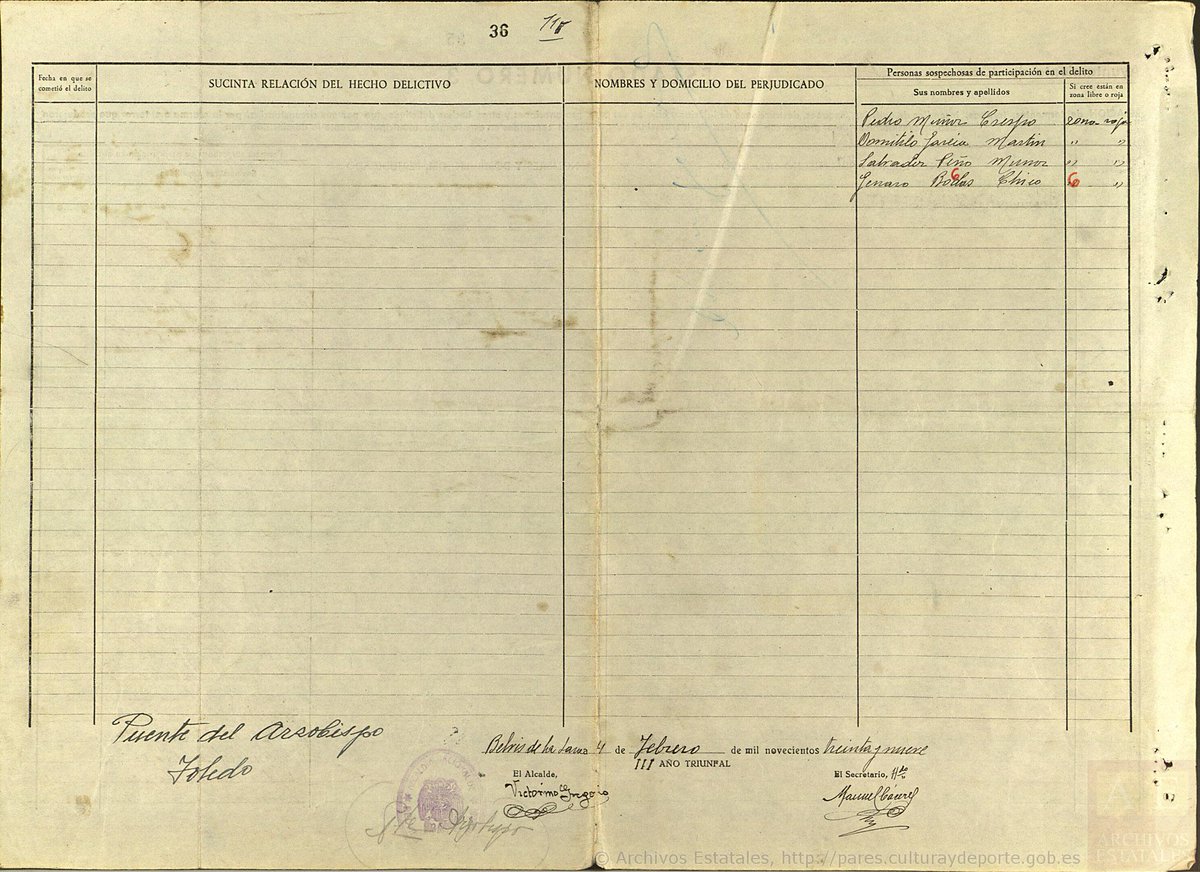 36 118
Fecha en que se
cometió el delito
SUCINTA RELACIÓN DEL HECHO DELICTIVO
NOMBRES Y DOMICILIO DEL PERJUDICADO
Personas sospechosas de participación en el delito
Sus nombres y apellidos
Si cree están en
zona libre o roja
Pedro Muñoz Crespo zona roja
Domitilo García Martin " "
Salvador Peño Munoz " "
Genaro Bollas Chico " "
6 6
Puente del Arzobispo
Toledo
Belvis de la Jara 4 de Febrero de mil novecientos treinta y nueve
III AÑO TRIUNFAL
El Alcalde,
Victorino Gregorio
El Secretario, Hdo
Manuel
© Archivos Estatales, http://pares.culturaydeporte.gob.es
ARCHIVOS
ESTATALES